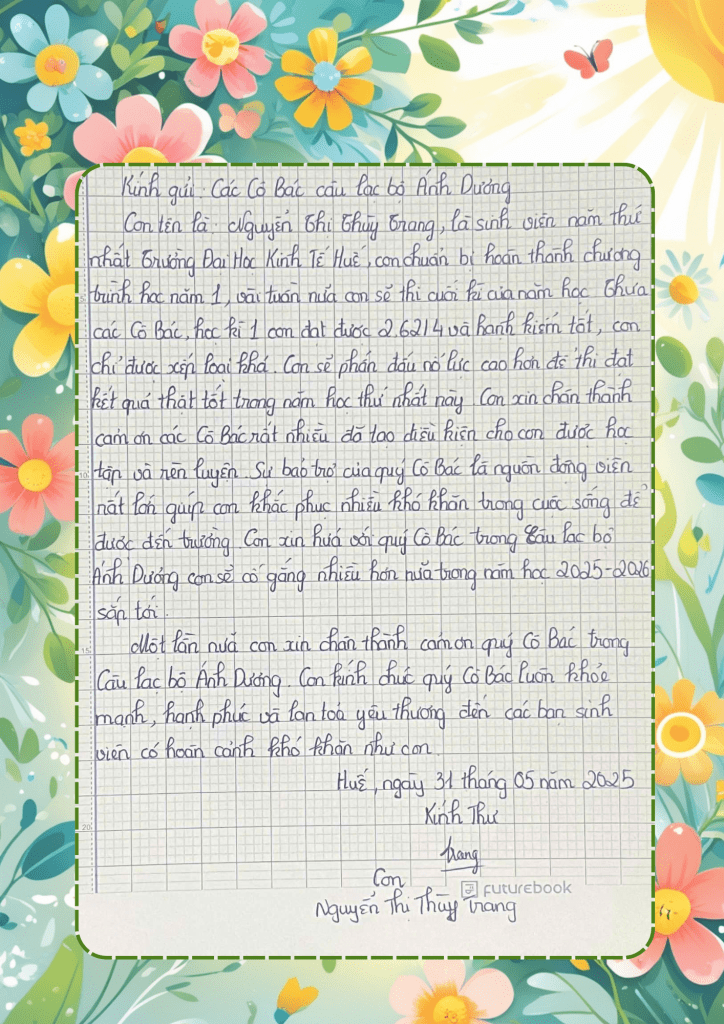 Kính gửi: Các Cô Bác câu lạc bộ Ánh Dương
Con tên là: Nguyễn Thị Thùy Trang, là sinh viên năm thứ
nhất Trường Đại Học Kinh Tế Huế, con chuẩn bị hoàn thành chương
trình học năm 1, vài tuần nữa con sẽ thi cuối kì của năm học. Thưa
các Cô Bác, học kì 1 con đạt được 2.62/4 và hạnh kiểm tốt, con
chỉ được xếp loại khá. Con sẽ phấn đấu nổ lực cao hơn để thi đạt
kết quả thật tốt trong năm học thứ nhất này. Con xin chân thành
cảm ơn các Cô Bác rất nhiều đã tạo điều kiện cho con được học
tập và rèn luyện. Sự bảo trợ của quý Cô Bác là nguồn động viên
rất lớn giúp con khắc phục nhiều khó khăn trong cuộc sống để
được đến trường. Con xin hứa với quý Cô Bác trong Câu lạc bộ
Ánh Dương con sẽ cố gắng nhiều hơn nữa trong năm học 2025-2026
sắp tới.
Một lần nữa con xin chân thành cảm ơn quý Cô Bác trong
Câu lạc bộ Ánh Dương. Con kính chúc quý Cô Bác luôn khỏe
mạnh, hạnh phúc và lan toả yêu thương đến các bạn sinh
viên có hoàn cảnh khó khăn như con.
Huế, ngày 31 tháng 05 năm 2025
Kính Thư
Trang
Con
futurebook
Nguyễn Thị Thùy Trang